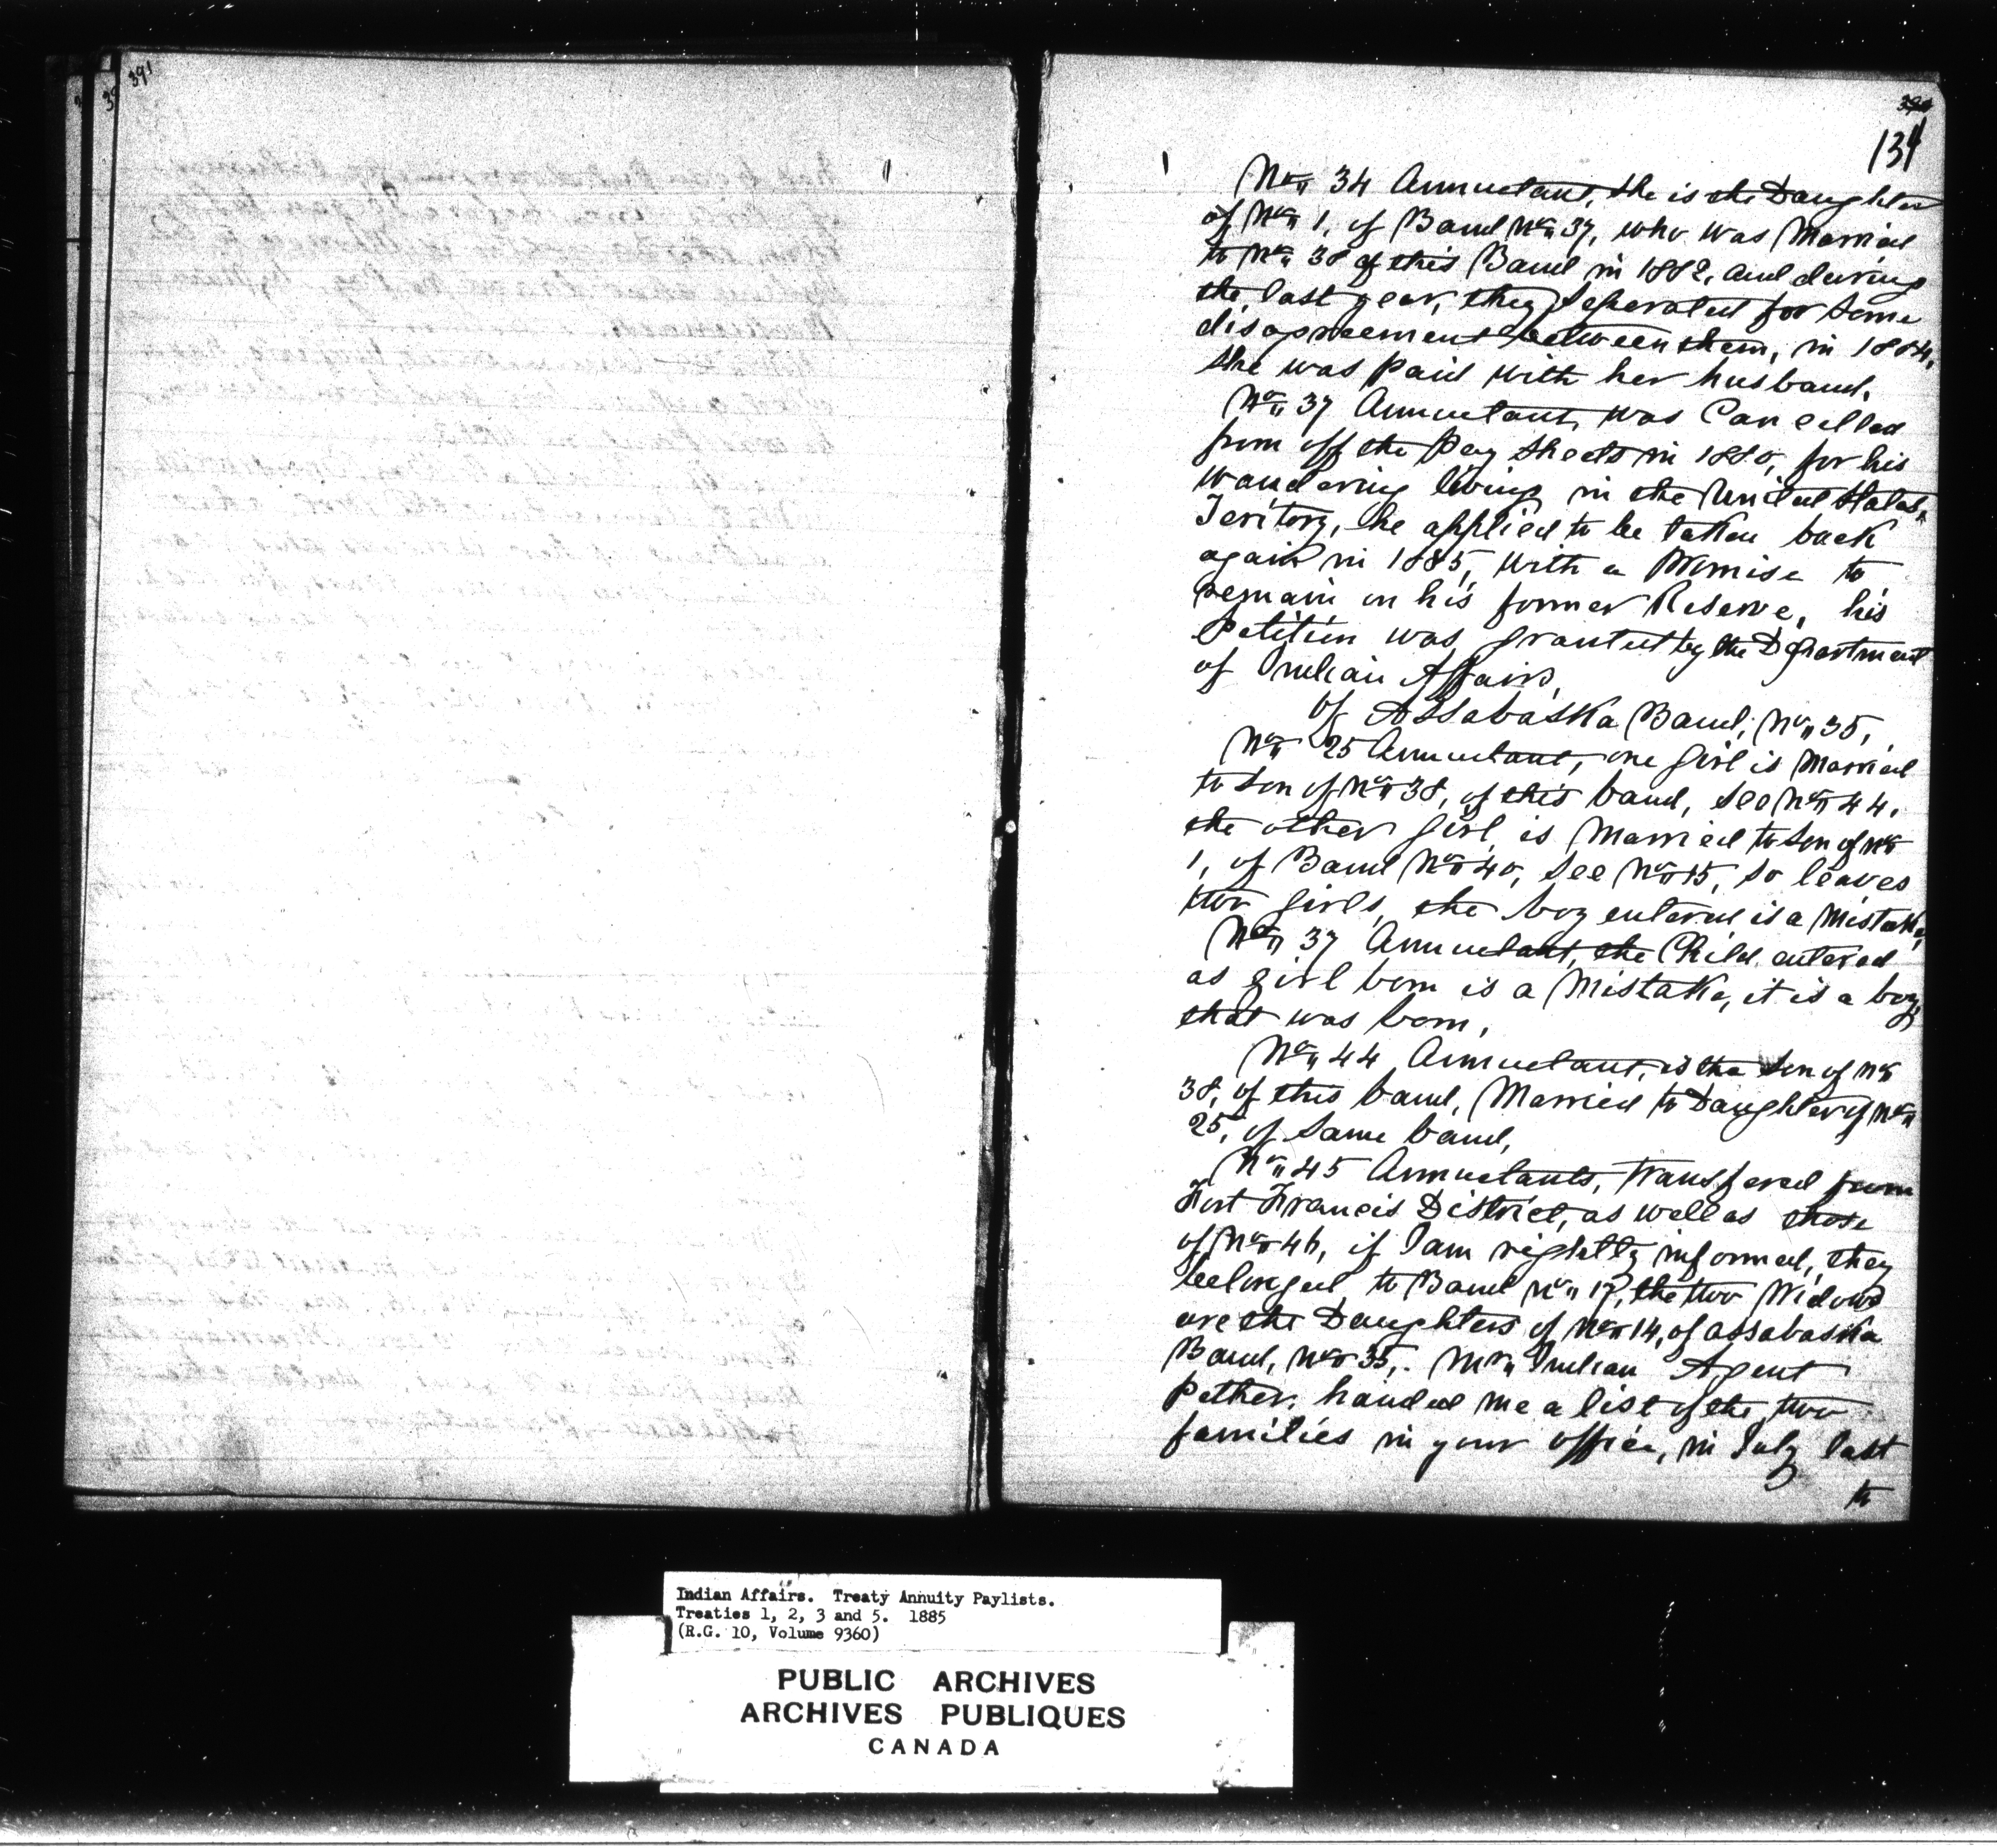 391
134
No 34 Annuetant, she is the Daughter
of No 1, of Band No 37, who was Married
to No 38 of this Band in 1882, and during
the last year, they Seperated for Some
disagreement between them, in 1884,
she was paid with her husband.
No 37 Annuetant, was Cancelled
from off the Pay Sheets in 1880, for his
wandering living in the United States
Teritory, he applied to be taken back
again in 1885, with a Promise to
remain on his former Reserve, his
Petition was granted by the Department
of Indian Affairs,
of Assabaska Band, No 35,
No 25 Annuetant, one girl is Married
to Son of No 38, of this band, See No 44,
the other girl is Married to Son of No
1, of Band No 40, See No 15, So leaves
two girls, the boy entered is a Mistake,
No 37 Annuetant, the Child entered
as girl born is a Mistake, it is a boy
that was born,
No 44 Annuetant, is the Son of No
38, of this band, Married to Daughter of No
25, of Same band,
No 45 Annuetants, transfered from
Fort Francis District, as well as those
of No 46, if I am rightly informed, they
belonged to Band No 17, the two Widows
are the Daughters of No 14, of Assabaska
Band, No 35,. Mr Indian Agent
Pether, handed me a list of the two
families in your office, in July last
to
Indian Affairs. Treaty Annuity Paylists.
Treaties 1, 2, 3 and 5. 1885
(R.G. 10, Volume 9360)
PUBLIC ARCHIVES
ARCHIVES PUBLIQUES
CANADA